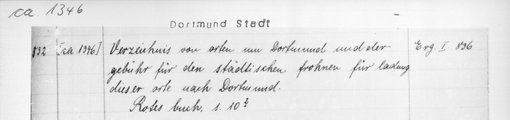 ca. 1346
Dortmund Stadt
832 [ca 1346] Verzeichnis von orten um Dortmund und der Erg. I 836
gebühr für den städtischen frohnen für ladung
dieser orte nach Dortmund.
Rotes buch. s. 10